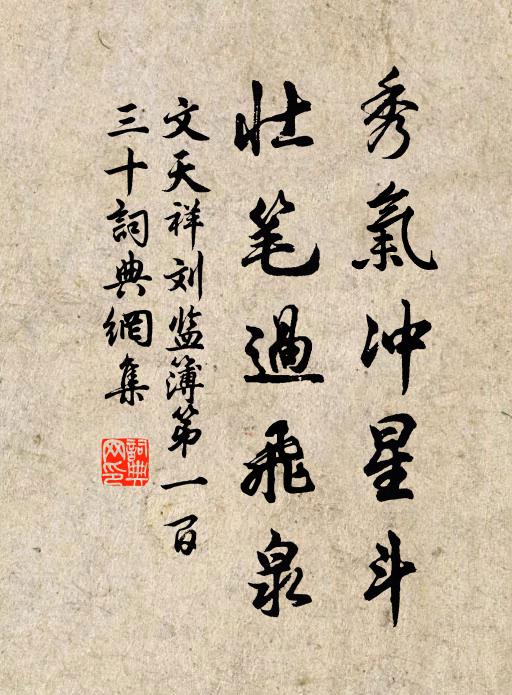 秀氣冲星斗
壮笔過飛泉
文天祥刘监簿第一百
三十詞典網集
詞典网印